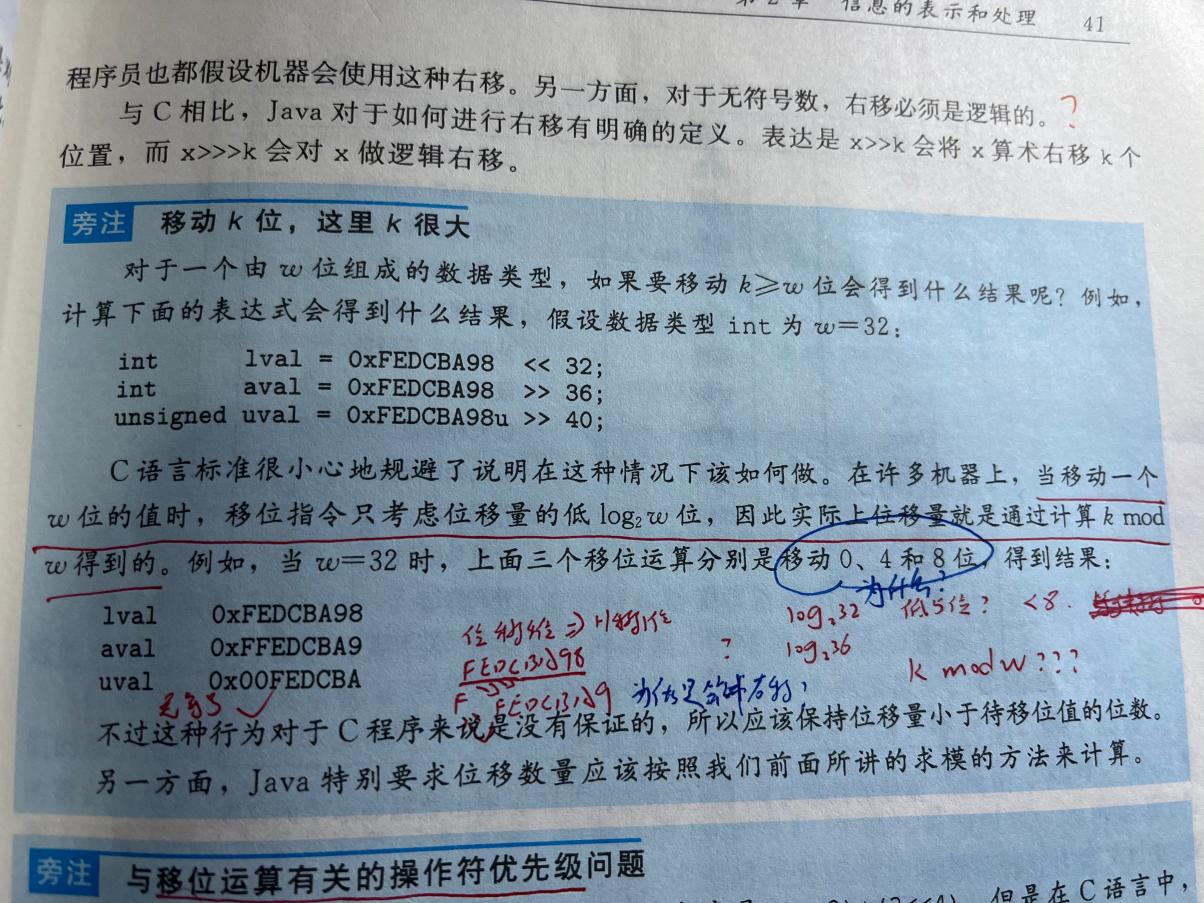 第 2 章 信息的表示和处理 41
程序员也都假设机器会使用这种右移。另一方面，对于无符号数，右移必须是逻辑的。?
与 C 相比，Java 对于如何进行右移有明确的定义。表达是 x>>k 会将 x 算术右移 k 个
位置，而 x>>>k 会对 x 做逻辑右移。
旁注 移动 k 位，这里 k 很大
对于一个由 w 位组成的数据类型，如果要移动 k≥w 位会得到什么结果呢？例如，
计算下面的表达式会得到什么结果，假设数据类型 int 为 w=32：
int lval = 0xFEDCBA98 << 32;
int aval = 0xFEDCBA98 >> 36;
unsigned uval = 0xFEDCBA98u >> 40;
C 语言标准很小心地规避了说明在这种情况下该如何做。在许多机器上，当移动一个
w 位的值时，移位指令只考虑位移量的低 log₂w 位，因此实际上位移量就是通过计算 k mod
w 得到的。例如，当 w=32 时，上面三个移位运算分别是移动 0、4 和 8 位，得到结果：
为什么?
lval 0xFEDCBA98
log₂32 低5位? <8.
aval 0xFFEDCBA9
? log₂36
FEDCBA98
k mod w???
uval 0x00FEDCBA
F FEDCBA9
不过这种行为对于 C 程序来说是没有保证的，所以应该保持位移量小于待移位值的位数。
另一方面，Java 特别要求位移数量应该按照我们前面所讲的求模的方法来计算。
旁注 与移位运算有关的操作符优先级问题
但是在 C 语言中，